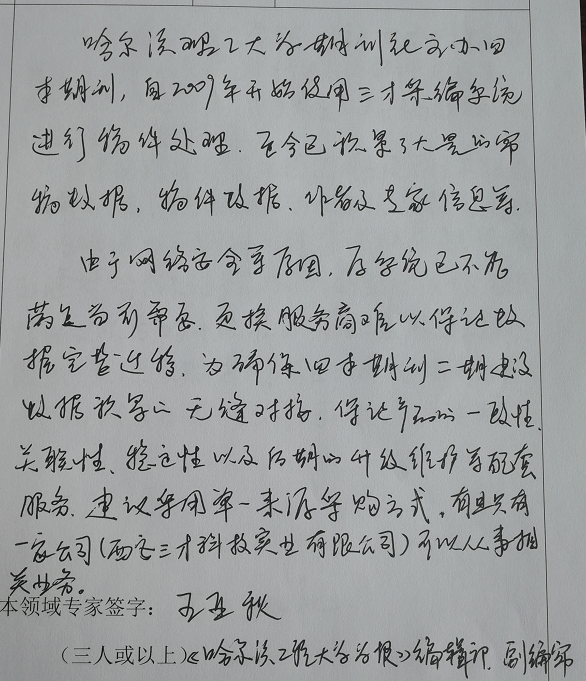 哈尔滨理工大学期刊社主办四
本期刊，自2009年开始使用三才采编系统
进行稿件处理，至今已积累了大量的审
稿数据，稿件数据、作者及专家信息等。
由于网络安全等原因，原系统已不能
满足当前需要，更换服务商难以保证数
据完整迁移，为确保四本期刊二期建设
数据积累的无缝对接，保证产品的一致性、
关联性、稳定性以及后期的升级维护等配套
服务，建议采用单一来源采购方式，有且只有
一家公司(西安三才科技实业有限公司)可以从事相
关业务。
本领域专家签字：王亚秋
（三人或以上）《哈尔滨工程大学学报》编辑部 副编审